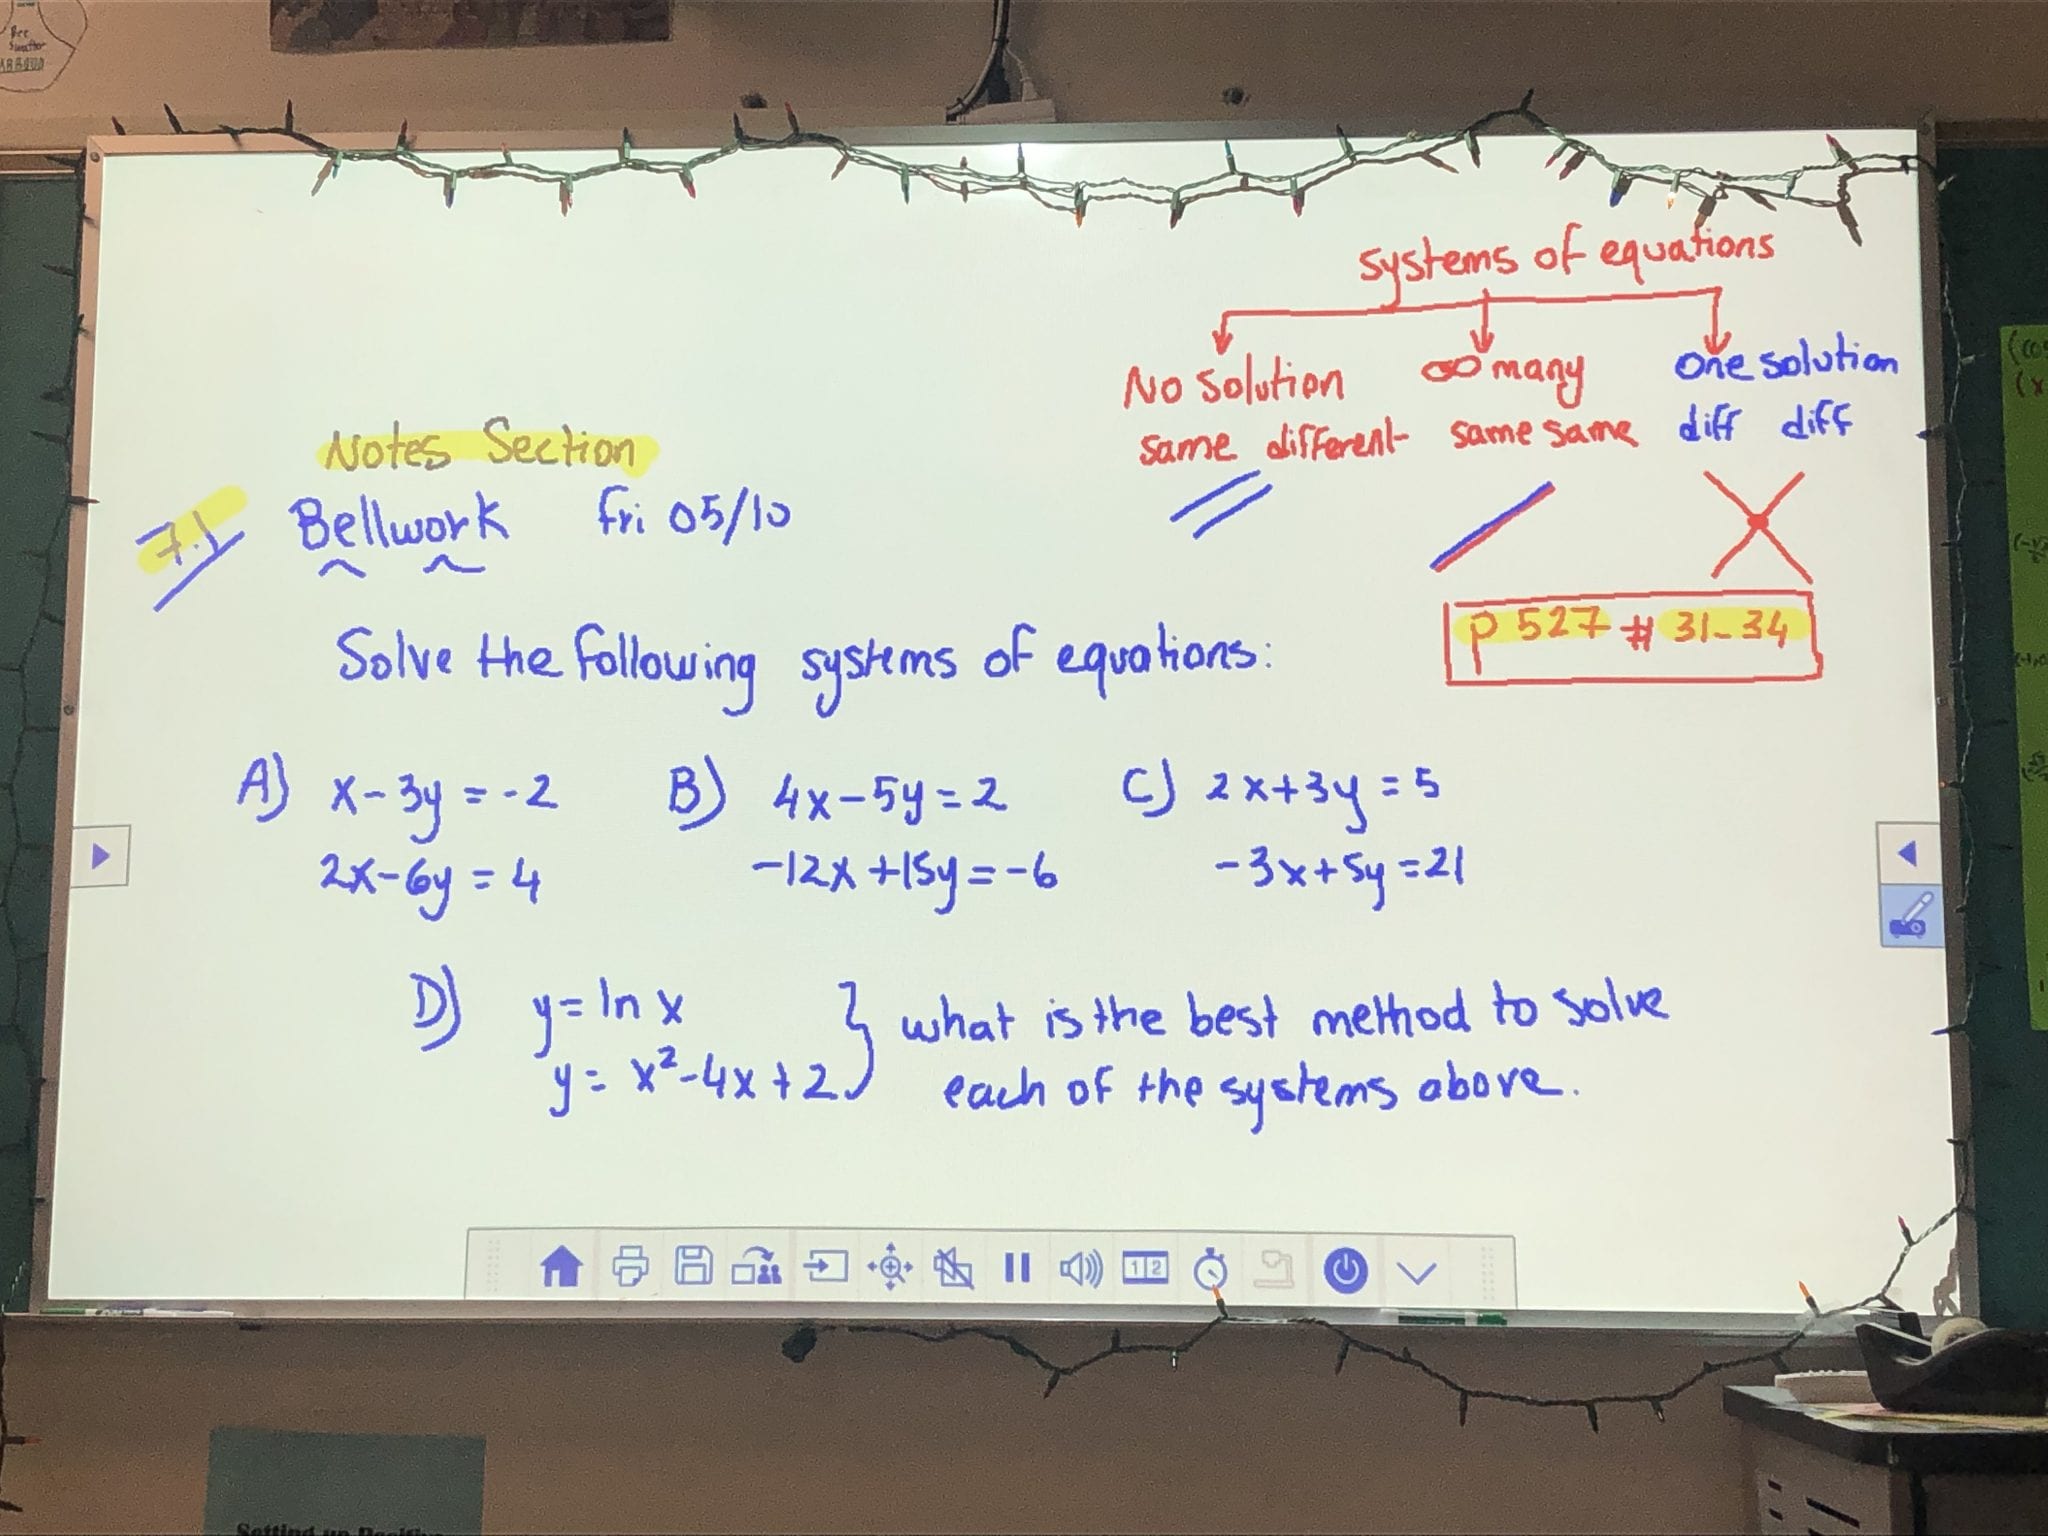 Bee
systems of equations
No Solution ∞ many One solution
same different same same diff diff
Notes Section
7.1 Bellwork Fri 05/10
p 527 # 31-34
Solve the following systems of equations:
A) x-3y = -2 B) 4x-5y = 2 C) 2x+3y = 5
2x-6y = 4 -12x+15y = -6 -3x+5y = 21
D) y = ln x } what is the best method to solve
y = x²-4x+2 each of the systems above.
1 2